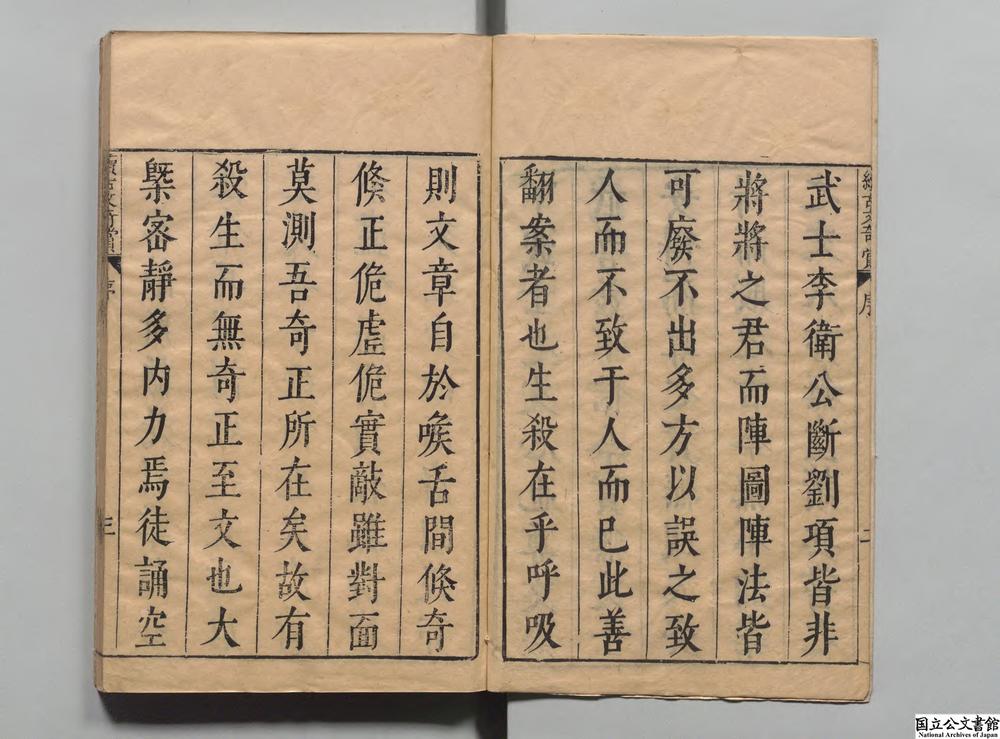 武士李衛公斷劉項皆非
將將之君而陣圖陣法皆
可廢不出多方以誤之致
人而不致于人而已此善
翻案者也生殺在乎呼吸
則文章自於喉舌間倐奇
倐正佹虛佹實敵雖對面
莫測吾奇正所在矣故有
殺生而無奇正至文也大
槩宻靜多内力焉徒誦空
續古文奇賞
序
二
序
三
国立公文書館
National Archives of Japan